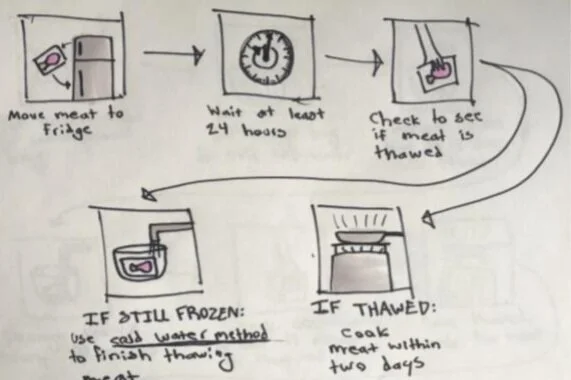 Move meat to
Fridge
Wait at least
24 hours
Check to see
if meat is
thawed
IF STILL FROZEN:
use cold water method
to finish thawing
meat
IF THAWED:
Cook
meat within
two days